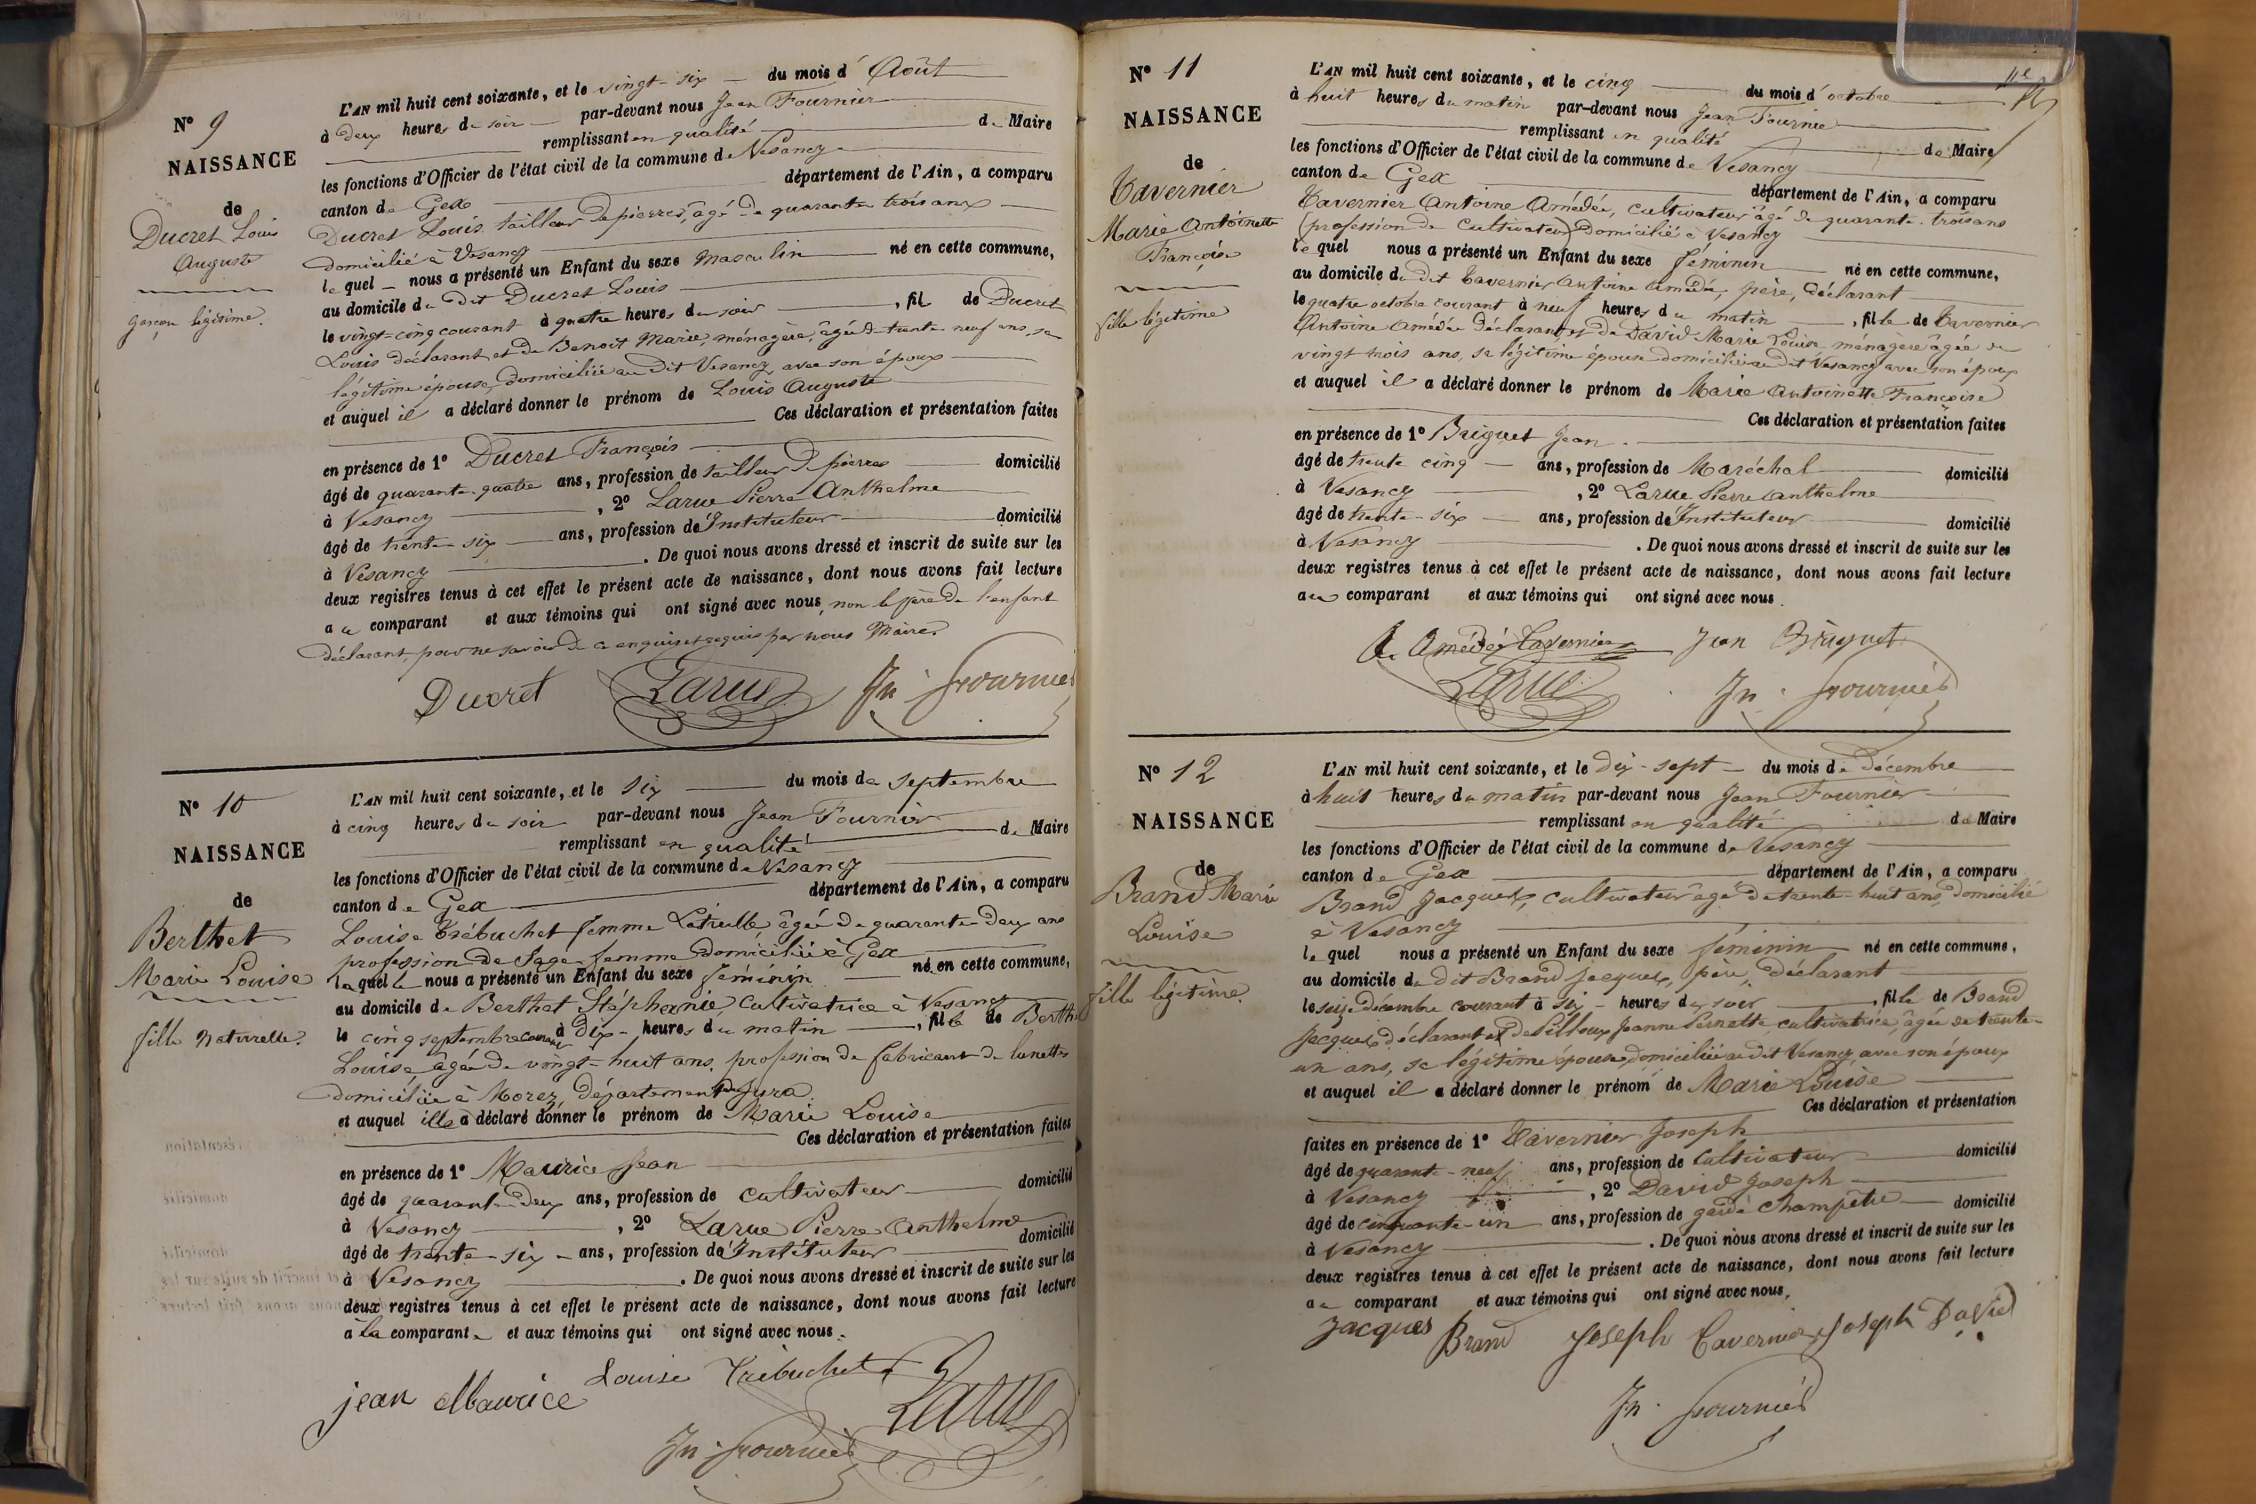 N° 9
NAISSANCE
de
Ducret Louis
Auguste
Garçon légitime.
L'AN mil huit cent soixante, et le vingt-six du mois d'Août
à deux heures du soir par-devant nous Jean Fournier
remplissant en qualité de Maire
les fonctions d'Officier de l'état civil de la commune de Vesancy
canton de Gex département de l'Ain, a comparu
Ducret Louis tailleur de pierres, âgé de quarante trois ans
domicilié à Vesancy
lequel nous a présenté un Enfant du sexe masculin né en cette commune,
au domicile du dit Ducret Louis
le vingt-cinq courant à quatre heures du soir, fil de Ducret
Louis déclarant et de Benoit Marie, ménagère, âgée de trente neuf ans, sa
légitime épouse, domiciliée au dit Vesancy avec son époux
et auquel il a déclaré donner le prénom de Louis Auguste
Ces déclaration et présentation faites
en présence de 1° Ducret François
âgé de quarante-quatre ans, profession de tailleur de pierres domicilié
à Vesancy, 2° Larue Pierre Anthelme
âgé de trente-six ans, profession d'Instituteur domicilié
à Vesancy. De quoi nous avons dressé et inscrit de suite sur les
deux registres tenus à cet effet le présent acte de naissance, dont nous avons fait lecture
au comparant et aux témoins qui ont signé avec nous, non le père de l'enfant
déclarant, pour ne savoir de ce enquis et requis par nous Maire.
Ducret Larue Jn. Fournier
N° 10
NAISSANCE
de
Berthet
Marie Louise
fille naturelle.
L'AN mil huit cent soixante, et le six du mois de septembre
à cinq heures du soir par-devant nous Jean Fournier
remplissant en qualité de Maire
les fonctions d'Officier de l'état civil de la commune de Vesancy
canton de Gex département de l'Ain, a comparu
Louise Trébuchet femme Latreille, âgée de quarante-deux ans
profession de Sage-femme domiciliée à Gex
laquelle nous a présenté un Enfant du sexe féminin né en cette commune,
au domicile de Berthet Stéphanie, cultivatrice à Vesancy
le cinq septembre courant à dix heures du matin, fille de Berthet
Louise, âgée de vingt-huit ans, profession de fabricant de lunettes
domiciliée à Morez, Département du Jura.
et auquel ille a déclaré donner le prénom de Marie Louise
Ces déclaration et présentation faites
en présence de 1° Maurice Jean
âgé de quarante-deux ans, profession de cultivateur domicilié
à Vesancy, 2° Larue Pierre Anthelme
âgé de trente-six ans, profession d'Instituteur domicilié
à Vesancy. De quoi nous avons dressé et inscrit de suite sur les
deux registres tenus à cet effet le présent acte de naissance, dont nous avons fait lecture
à la comparante et aux témoins qui ont signé avec nous.
jean Maurice Louise Trébuchet Larue
Jn. Fournier
N° 11
NAISSANCE
de
Tavernier
Marie Antoinette
Françoise
fille légitime
L'AN mil huit cent soixante, et le cinq du mois d'octobre
à huit heures du matin par-devant nous Jean Fournier
remplissant en qualité de Maire
les fonctions d'Officier de l'état civil de la commune de Vesancy
canton de Gex département de l'Ain, a comparu
Tavernier Antoine Amédée, cultivateur âgé de quarante-trois ans
(profession de Cultivateur) domicilié à Vesancy
lequel nous a présenté un Enfant du sexe féminin né en cette commune,
au domicile du dit Tavernier Antoine Amédée, père, déclarant
le quatre octobre courant à neuf heures du matin, fille de Tavernier
Antoine Amédée déclarant, et de David Marie Louise ménagère âgée de
vingt trois ans, sa légitime épouse domiciliée au dit Vesancy avec son époux
et auquel il a déclaré donner le prénom de Marie Antoinette Françoise
Ces déclaration et présentation faites
en présence de 1° Briguet Jean
âgé de trente cinq ans, profession de Maréchal domicilié
à Vesancy, 2° Larue Pierre Anthelme
âgé de trente-six ans, profession d'Instituteur domicilié
à Vesancy. De quoi nous avons dressé et inscrit de suite sur les
deux registres tenus à cet effet le présent acte de naissance, dont nous avons fait lecture
au comparant et aux témoins qui ont signé avec nous.
A. Amédée Tavernier Jean Briguet
Larue Jn. Fournier
N° 12
NAISSANCE
de
Brand Marie
Louise
fille légitime.
L'AN mil huit cent soixante, et le dix-sept du mois de décembre
à huit heures du matin par-devant nous Jean Fournier
remplissant en qualité de Maire
les fonctions d'Officier de l'état civil de la commune de Vesancy
canton de Gex département de l'Ain, a comparu
Brand Jacques, cultivateur âgé de trente-huit ans, domicilié
à Vesancy
lequel nous a présenté un Enfant du sexe féminin né en cette commune,
au domicile du dit Brand Jacques, père, déclarant
le seize décembre courant à six heures du soir, fille de Brand
Jacques déclarant et de Pilloux Jeanne Pernette cultivatrice, âgée de trente-
un ans, sa légitime épouse, domiciliée au dit Vesancy, avec son époux
et auquel il a déclaré donner le prénom de Marie Louise
Ces déclaration et présentation
faites en présence de 1° Tavernier Joseph
âgé de quarante-neuf ans, profession de cultivateur domicilié
à Vesancy, 2° David Joseph
âgé de cinquante-un ans, profession de garde champêtre domicilié
à Vesancy. De quoi nous avons dressé et inscrit de suite sur les
deux registres tenus à cet effet le présent acte de naissance, dont nous avons fait lecture
au comparant et aux témoins qui ont signé avec nous,
Jacques Brand Joseph Tavernier Joseph David
Jn. Fournier